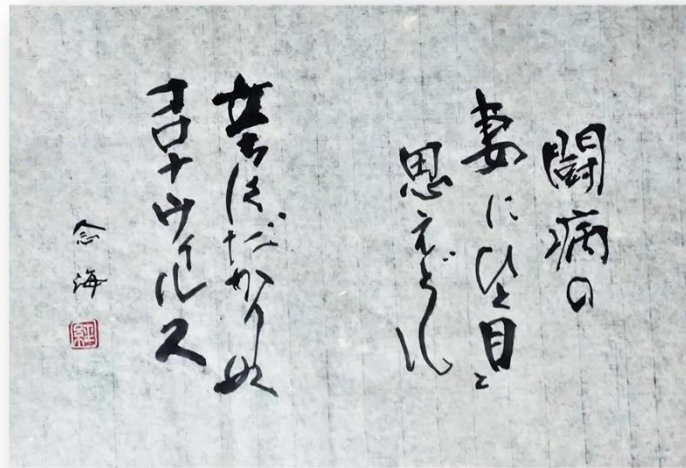 闘病の
妻にひと目と
思えども
立ちはだかりぬ
コロナウィルス
念海